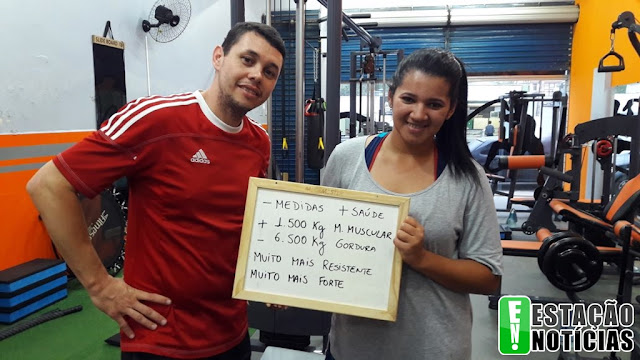 adidas
− MEDIDAS + SAÚDE
+ 1.500 Kg M. MUSCULAR
− 6.500 Kg GORDURA
MUITO MAIS RESISTENTE
MUITO MAIS FORTE
E!
ESTAÇÃO
NOTÍCIAS